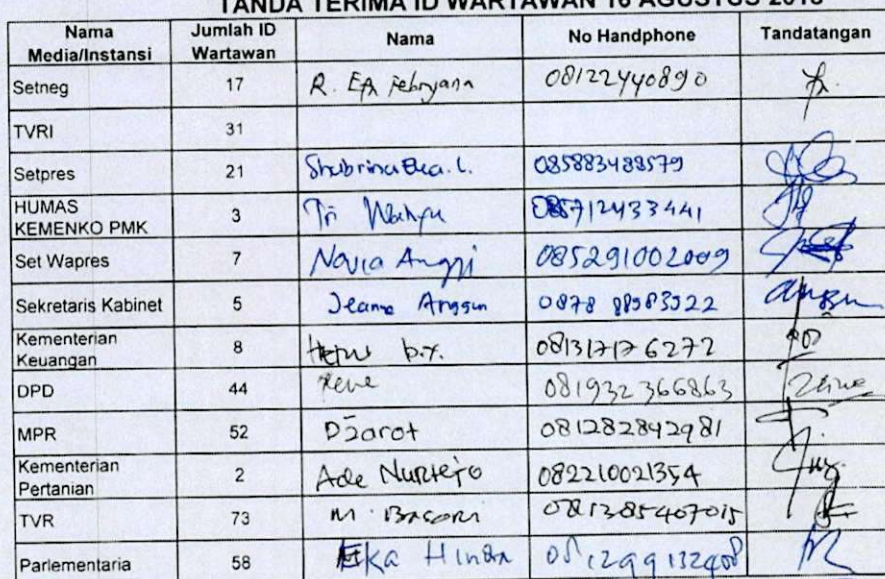 TANDA TERIMA ID WARTAWAN 16 AGUSTUS 2018
Nama Media/Instansi Jumlah ID Wartawan Nama No Handphone Tandatangan
Setneg 17 R. Febryana 08122440890
TVRI 31
Setpres 21 Shabrina L. 085883488579
HUMAS KEMENKO PMK 3 Tri Wahyu 085712433441
Set Wapres 7 Novia Anggi 085291002009
Sekretaris Kabinet 5 Jeanne Anggun 0878 88983922
Kementerian Keuangan 8 081317176272
DPD 44 081932366863
MPR 52 Djarot 081282842981
Kementerian Pertanian 2 Ade Nurtejo 082210021354
TVR 73 M. Basori 081385407015
Parlementaria 58 Eka Hindra 081299132408